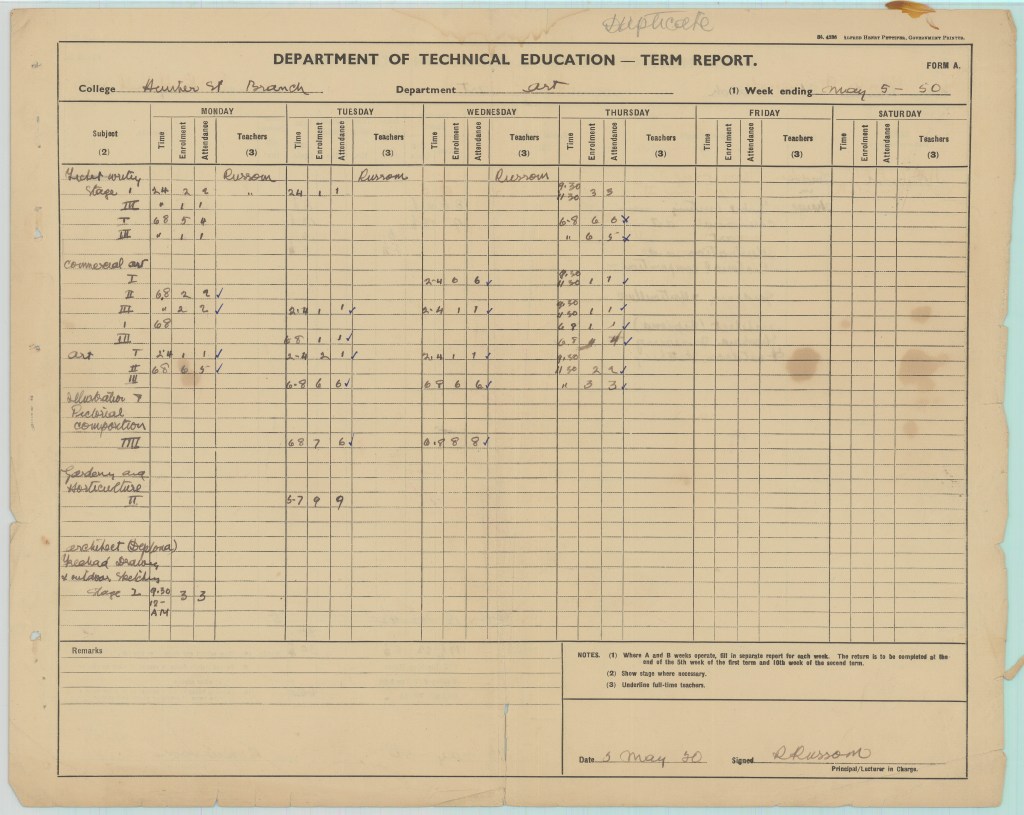 Duplicate
St. 4226 ALFRED HENRY PETTIFER, GOVERNMENT PRINTER.
DEPARTMENT OF TECHNICAL EDUCATION — TERM REPORT.
FORM A.
College Hunter St Branch Department art (1) Week ending May 5 - 50
MONDAY TUESDAY WEDNESDAY THURSDAY FRIDAY SATURDAY
Subject (2) Time Enrolment Attendance Teachers (3) Time Enrolment Attendance Teachers (3) Time Enrolment Attendance Teachers (3) Time Enrolment Attendance Teachers (3) Time Enrolment Attendance Teachers (3) Time Enrolment Attendance Teachers (3)
Ticket writing Russom Russom Russom
Stage I 24 2 2 " 24 1 1 9.30 11.30 3 3
III " 1 1
I 68 5 4 6-8 6 6 x
III " 1 1 " 6 5 x
Commercial art
I 2-4 6 6 ✓ 9.30 11.30 1 1 ✓
II 68 2 2 ✓
III " 2 2 ✓ 2-4 1 1 ✓ 2-4 1 1 ✓ 9.30 11.30 1 1 ✓
I 68 6 8 1 1 ✓
III 68 1 1 ✓ 6 8 4 ✓
art I 2-4 1 1 ✓ 2-4 2 1 ✓ 2.4 1 1 ✓ 9.30
II 68 6 5 ✓ 11.30 2 2 ✓
III 6-8 6 6 ✓ 6 8 6 6 ✓ " 3 3 ✓
illustration &
Pictorial
composition
III 68 7 6 ✓ 6.8 8 8 ✓
Gardening and
Horticulture
II 5-7 9 9
architect (Diploma)
Freehand Drawing
& outdoor Sketching
Stage 2 9.30 3 3
12-
AM
Remarks
NOTES. (1) Where A and B weeks operate, fill in separate report for each week. The return is to be completed at the
end of the 5th week of the first term and 10th week of the second term.
(2) Show stage where necessary.
(3) Underline full-time teachers.
Date 5 May 50 Signed R Russom
Principal/Lecturer in Charge.